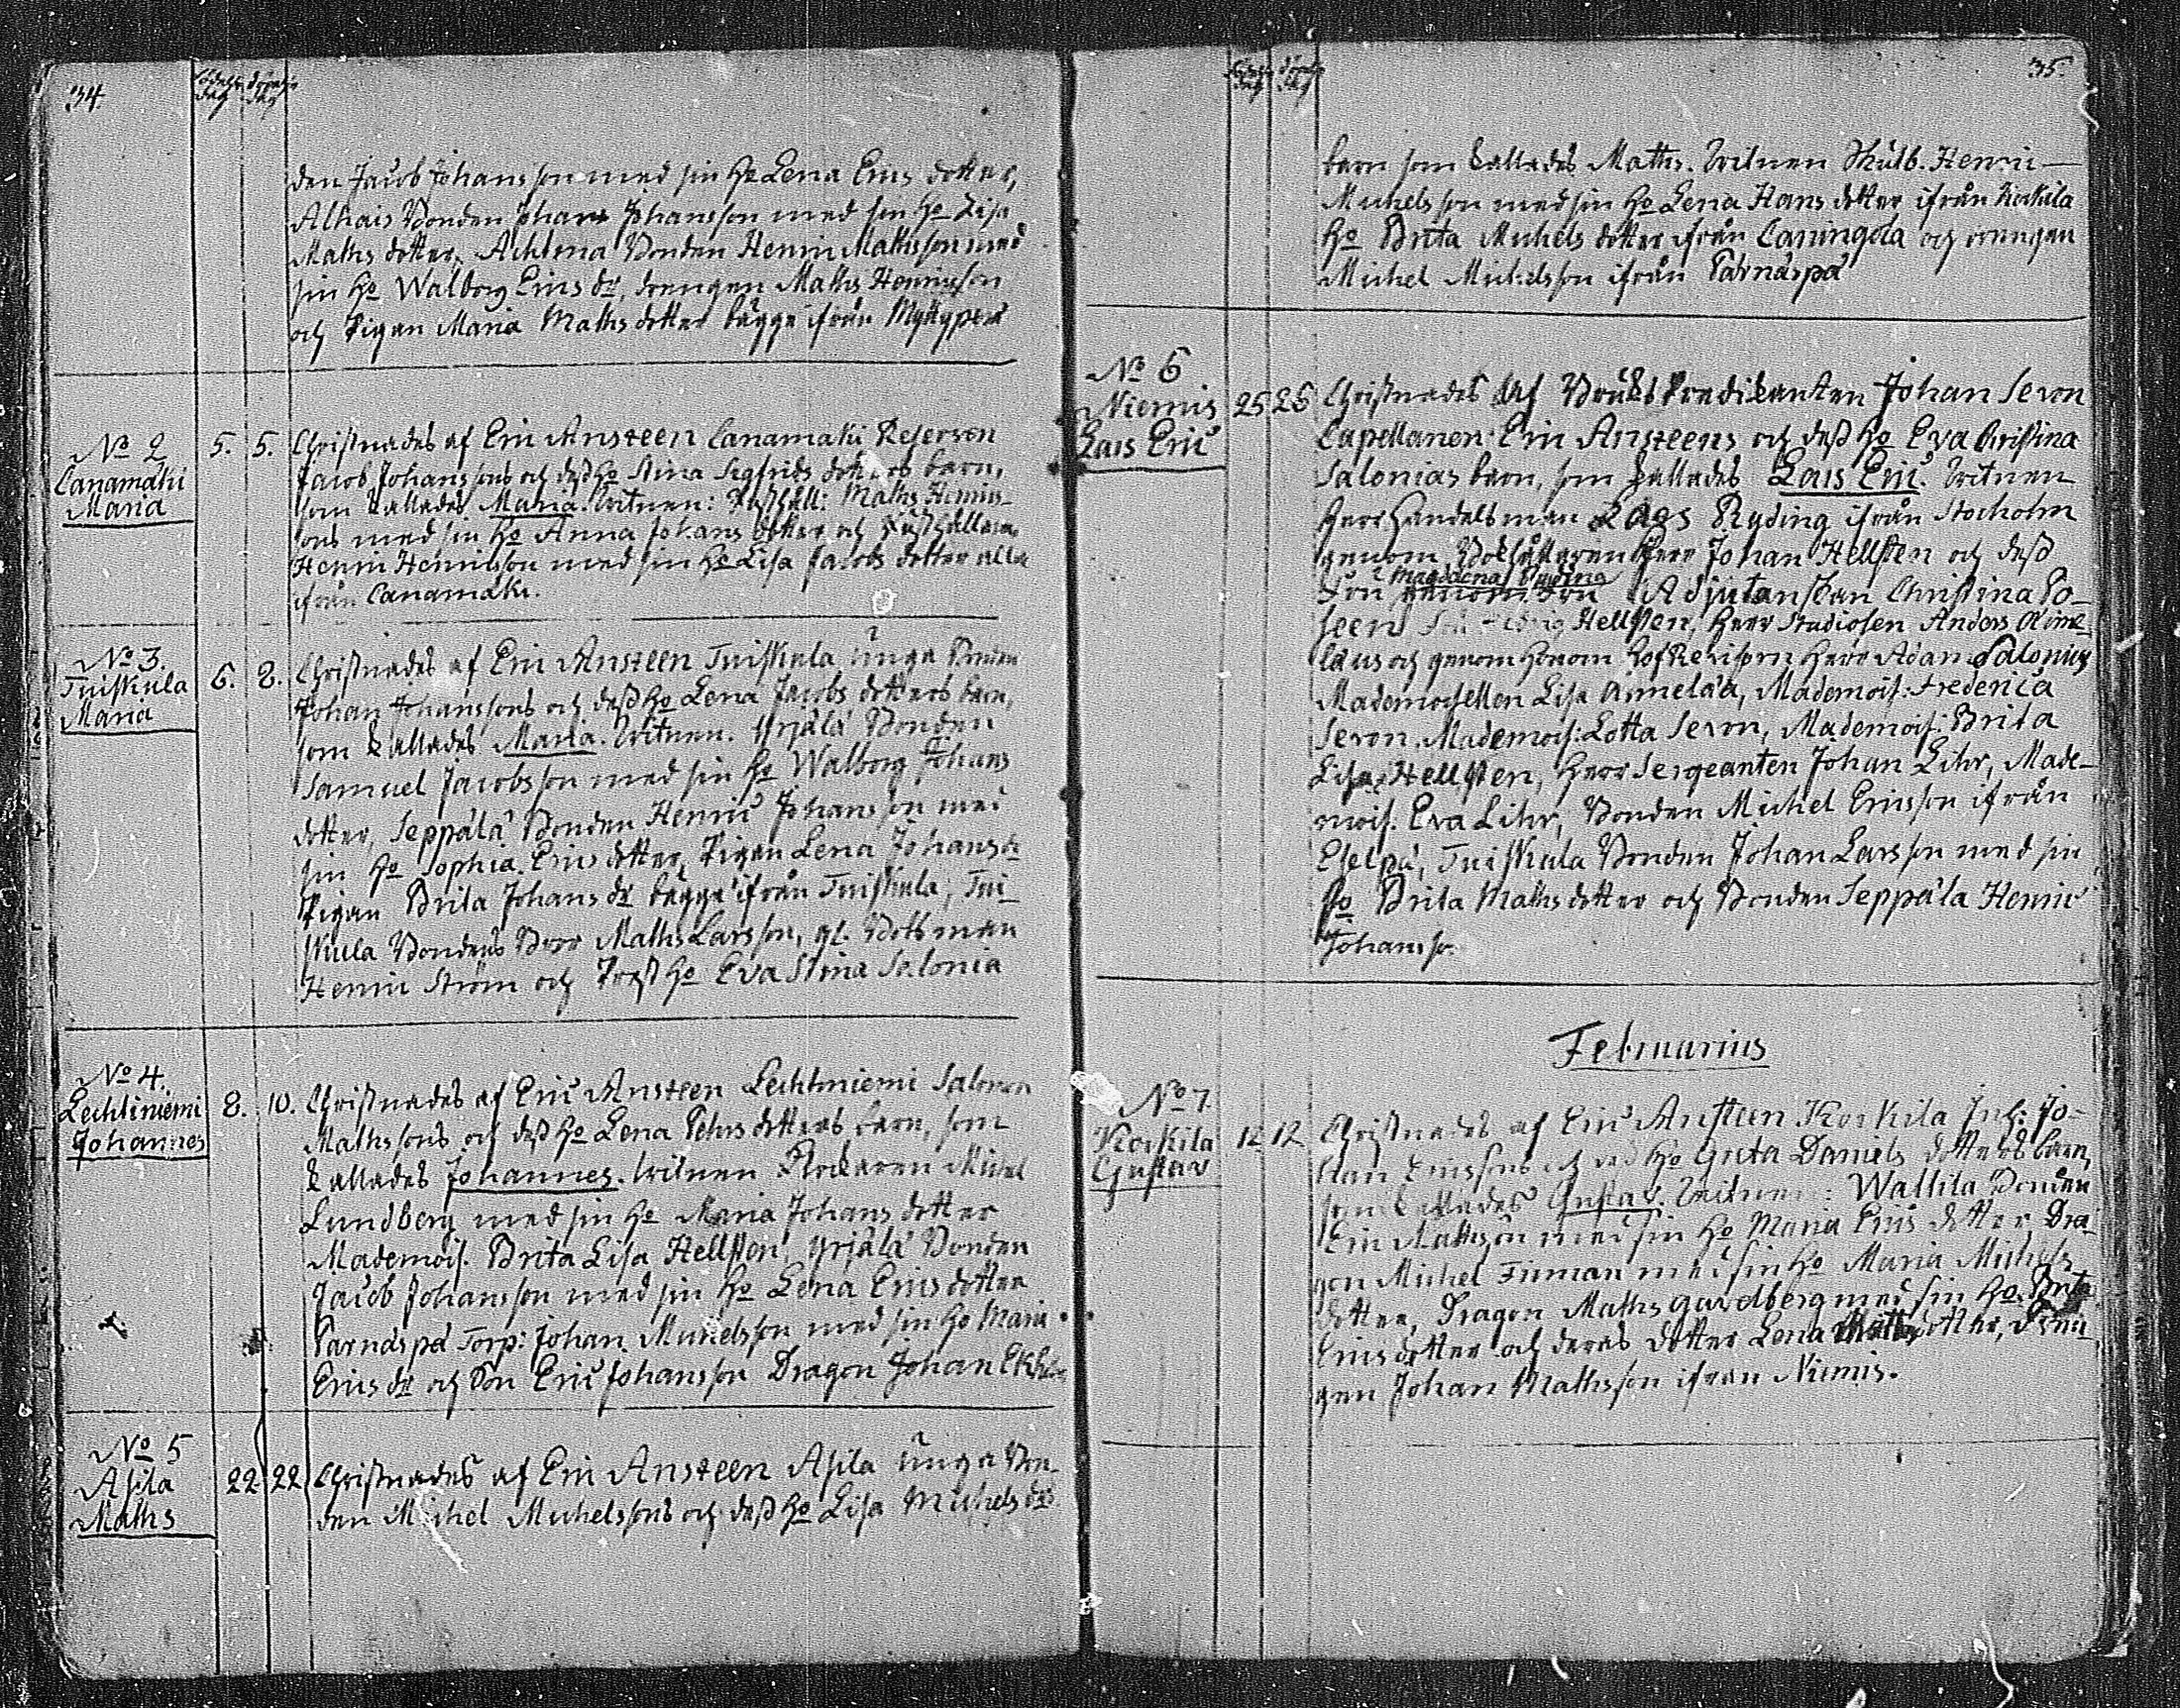 34.
födelse dag
döpelse dag
den Jacob Johansson med sin ho Lena Erics dotter,
Alhais Bonden Johan Johansson med sin ho Lisa
Maths dotter, Achlma Bonden Henric Mathsson med
sin ho Walborg Erics dr, drengen Maths Henricsson
och Pigan Maria Maths dotter bägge ifrån
No 2
Canamäki
Maria
5. 5. Christnades af Eric Ansteen Canamäki
Jacob Johanssons och dess ho Stina Sigfrids dotters barn,
som kallades Maria. Witnen: Maths Henrics-
sons med sin ho Anna Johans dotter och
Henric Henricsson med sin ho Lisa Jacobs dotter alla
ifrån Canamäki.
No 3.
Tuiskula
Maria
6. 8. Christnades af Eric Ansteen Tuiskula unga Bonden
Johan Johanssons och dess ho Lena Jacobs dotters barn,
som kallades Maria. Witnen. Yrjälä Bonden
Samuel Jacobsson med sin ho Walborg Johans
dotter, Seppälä Bonden Henric Johansson med
sin ho Sophia Erics dotter, Pigan Lena Johans dr
Pigan Brita Johans dr bägge ifrån Tuiskula, Tui-
skula Bondens Bror Maths Larsson, gl. Båtsman
Henric Ström och dess ho Eva Stina Salonia
No 4.
Lechtiniemi
Johannes
8. 10. Christnades af Eric Ansteen Lechtiniemi Salomon
Mathssons och dess ho Lena Pehrs dotters barn, som
kallades Johannes. Witnen Klockaren Michel
Lundberg med sin ho Maria Johans dotter
Mademois. Brita Lisa Hellsten, Yrjälä Bonden
Jacob Johansson med sin ho Lena Erics dotter
Parnäspä Torp: Johan Michelsson med sin ho Maria
Erics dr och Son Eric Johansson Dragon Johan
No 5
Asila
Maths
22 22 Christnades af Eric Ansteen Asila unga Bon-
den Michel Michelssons och dess ho Lisa Michels drs
35.
födelse dag
döpelse dag
barn som kallades Maths. Witnen Skutb. Henric
Michelsson med sin ho Lena Hans dotter ifrån Korkila
ho Brita Michels dotter ifrån Caningola och drengen
Michel Michelsson ifrån Parnäspä
No 6
Niemis
Lars Eric
25 26 Christnades af Bruks Predikanten Johan Seron
Capellanen Eric Ansteens och dess ho Eva Christina
Salonias barn, som kallades Lars Eric. Witnen
Herr Handelsman Lars Ryding ifrån Stocholm
genom Bokhållaren Herr Johan Hellsten och dess
Magdalena
Fru genom Fru Adjutanskan Christina Po-
seen Hellsten, Herr Studiosen Anders Aime-
laus och genom honom Hof Revisorn Herr Adam Salonius
Mademoisellen Lisa Aimeläa, Mademois: Frederica
Seron, Mademois: Lotta Seron, Mademois: Brita
Lisa Hellsten, Herr Sergeanten Johan Lihr, Made-
mois. Eva Lihr, Bonden Michel Ericsson ifrån
Eselpä, Tuiskula Bonden Johan Larsson med sin
ho Brita Maths dotter och Bonden Seppälä Henric
Johansso.
Februarius
No 7.
Korkila
Gustav
12 12 Christnades af Eric Ansteen Korkila Inh: Jo-
han Ericssons och dess ho Greta Daniels dotters barn,
som kallades Gustav. Witnen: Wallila Bonden
Eric Mathsson med sin ho Maria Erics dotter, Dra-
gon Michel Finman med sin ho Maria Michels
dotter, Dragon Maths Gardberg med sin ho Brita
Erics dotter och deras dotter Lena Maths dotter, Dren-
gen Johan Mathsson ifrån Niemis.